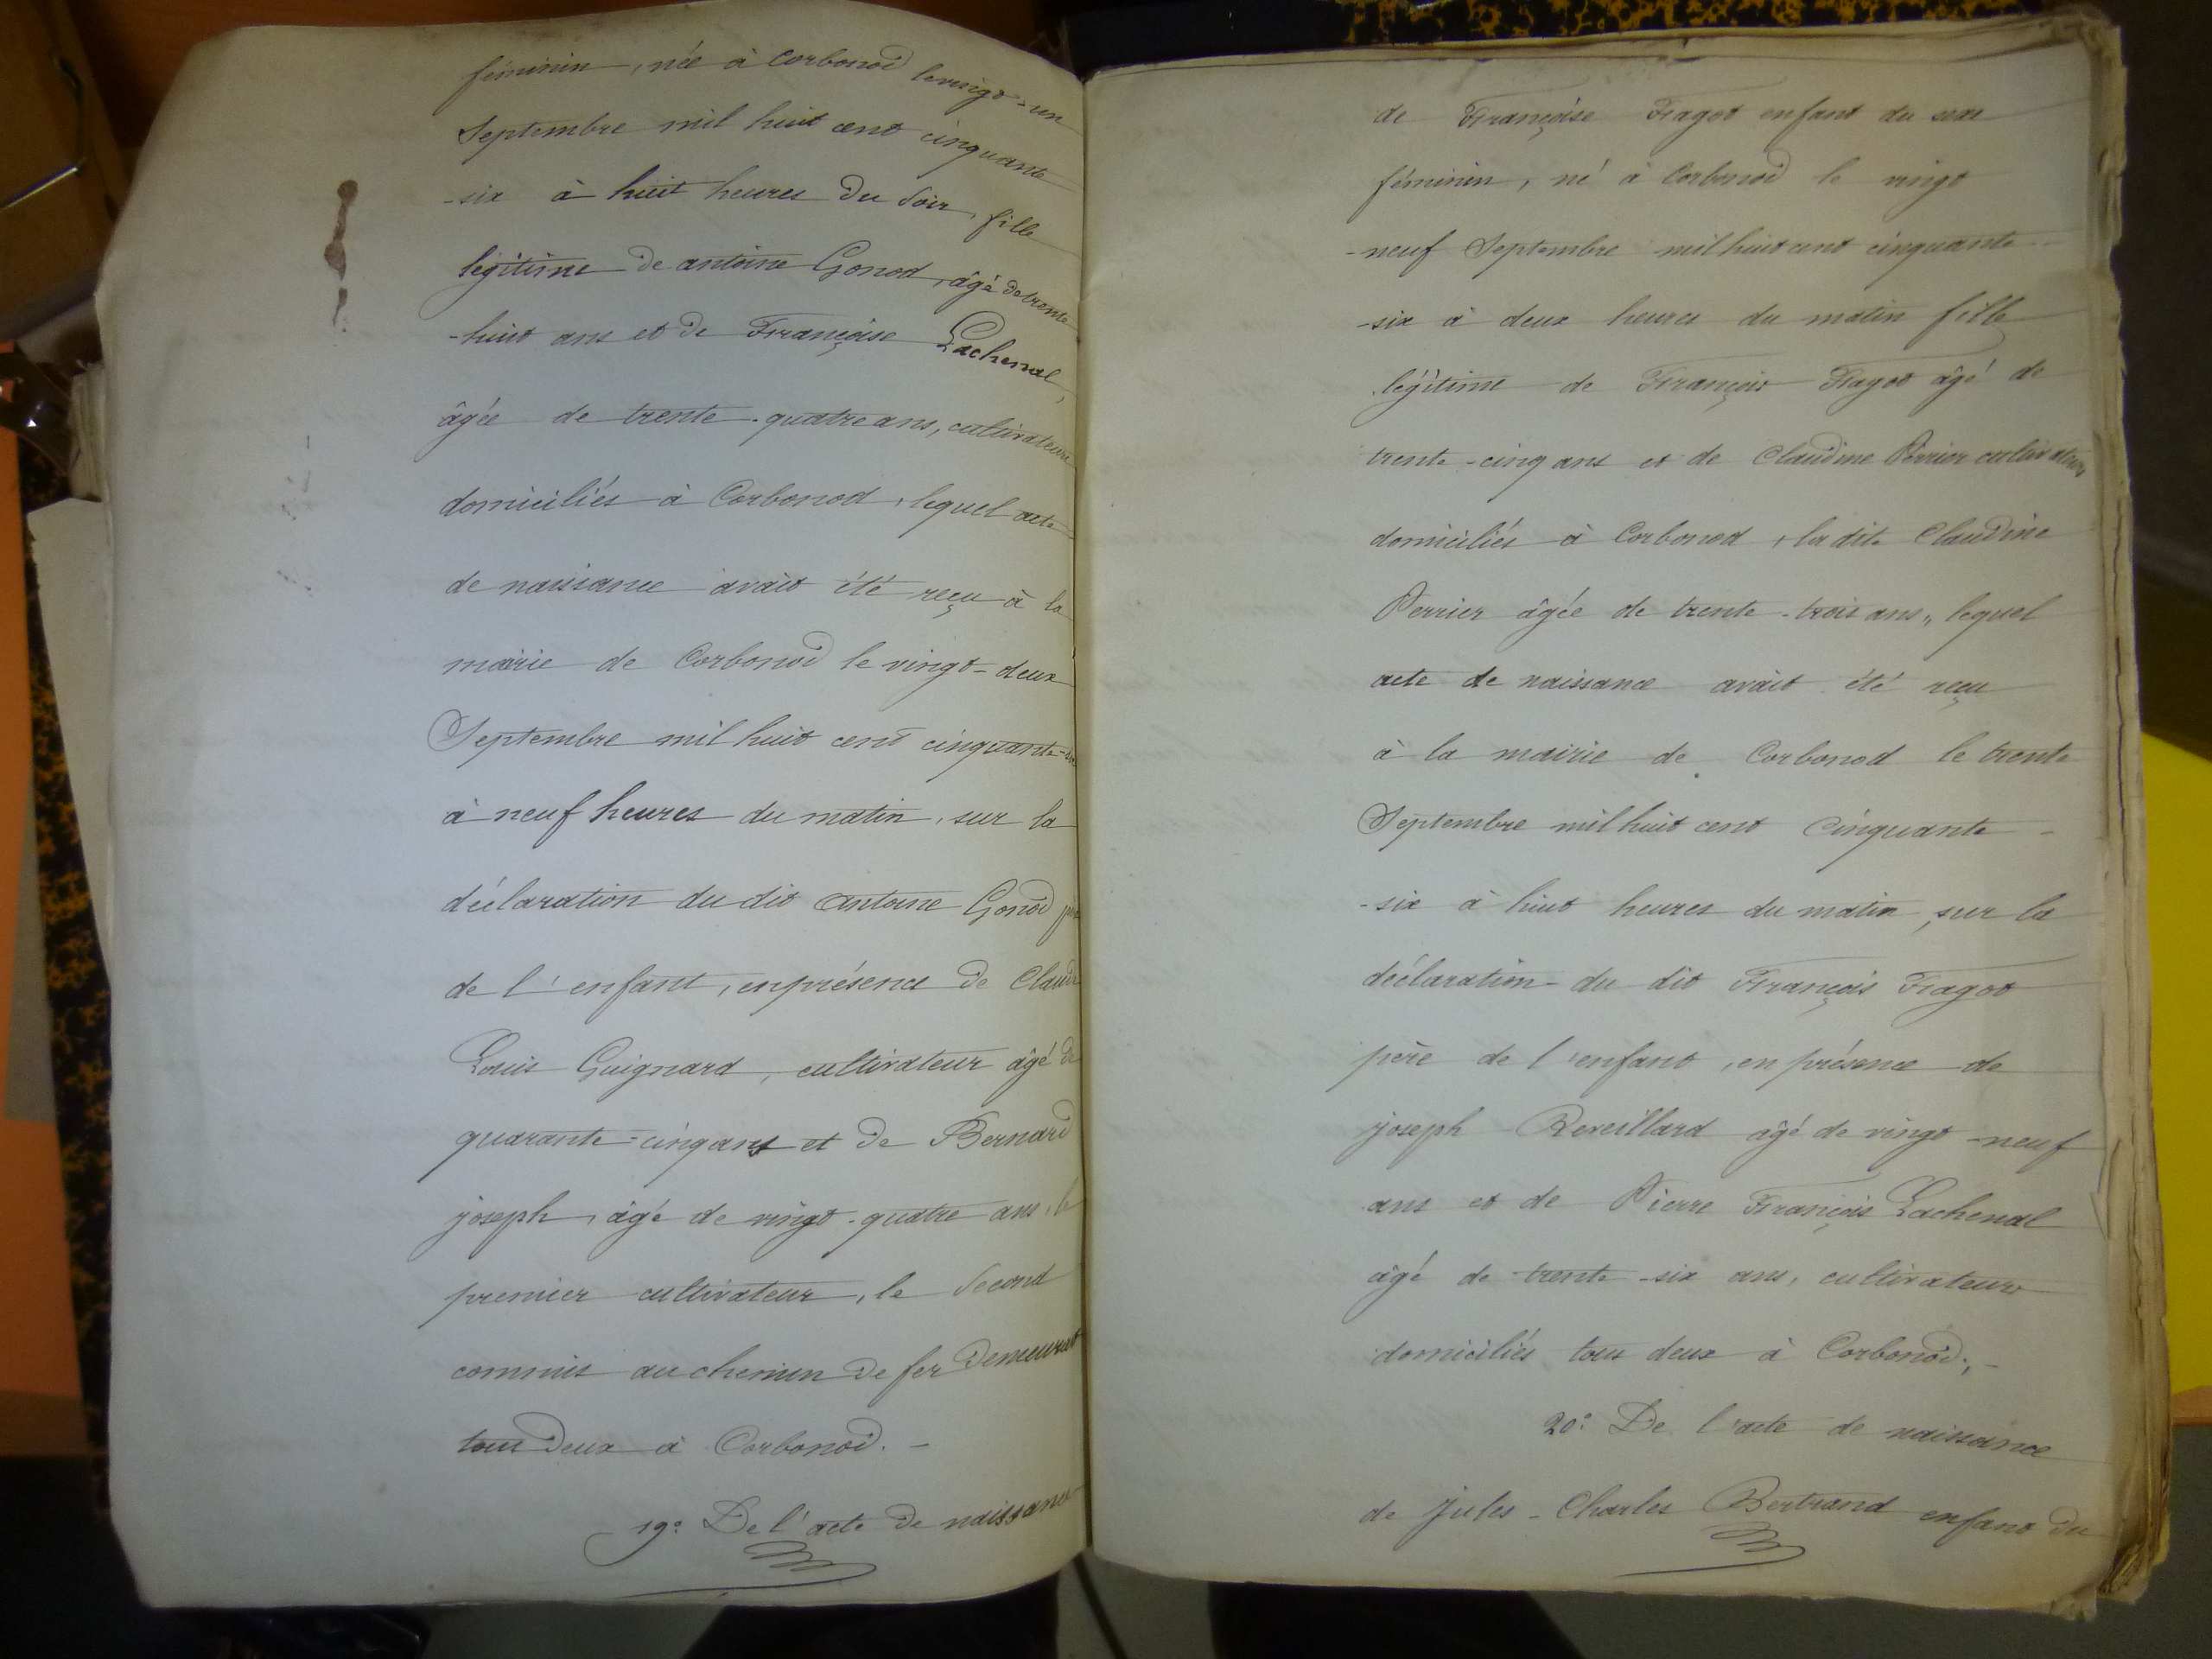 féminin, née à Corbonod le vingt-un
Septembre mil huit cent cinquante
-six à huit heures du Soir, fille
légitime de antoine Gonod, âgé de trente
-huit ans et de Françoise Lachenal,
âgée de trente-quatre ans, cultivateurs
domiciliés à Corbonod, lequel acte
de naissance avait été reçu à la
mairie de Corbonod le vingt-deux
Septembre mil huit cent cinquante-six
à neuf heures du matin, sur la
déclaration du dit antoine Gonod père
de l'enfant, en présence de Claude
Louis Guignard, cultivateur âgé de
quarante-cinq ans et de Bernard
joseph, âgé de vingt-quatre ans, le
premier cultivateur, le Second
commis au chemin de fer demeurant
tous deux à Corbonod. -
19° De l'acte de naissance
de Françoise Fagot enfant du sexe
féminin, né à Corbonod le vingt
-neuf Septembre mil huit cent cinquante
-six à deux heures du matin fille
légitime de François Fagot âgé de
trente-cinq ans et de Claudine Perrier cultivateurs
domiciliés à Corbonod, la dite Claudine
Perrier âgée de trente-trois ans,, lequel
acte de naissance avait été reçu
à la mairie de Corbonod le trente
Septembre mil huit cent cinquante -
-six à huit heures du matin, sur la
déclaration du dit François Fagot
père de l'enfant, en présence de
joseph Reveillard âgé de vingt-neuf
ans et de Pierre François Lachenal
âgé de trente-six ans, cultivateurs
domiciliés tous deux à Corbonod;, -
20° De l'acte de naissance
de Jules-Charles Bertrand enfant du